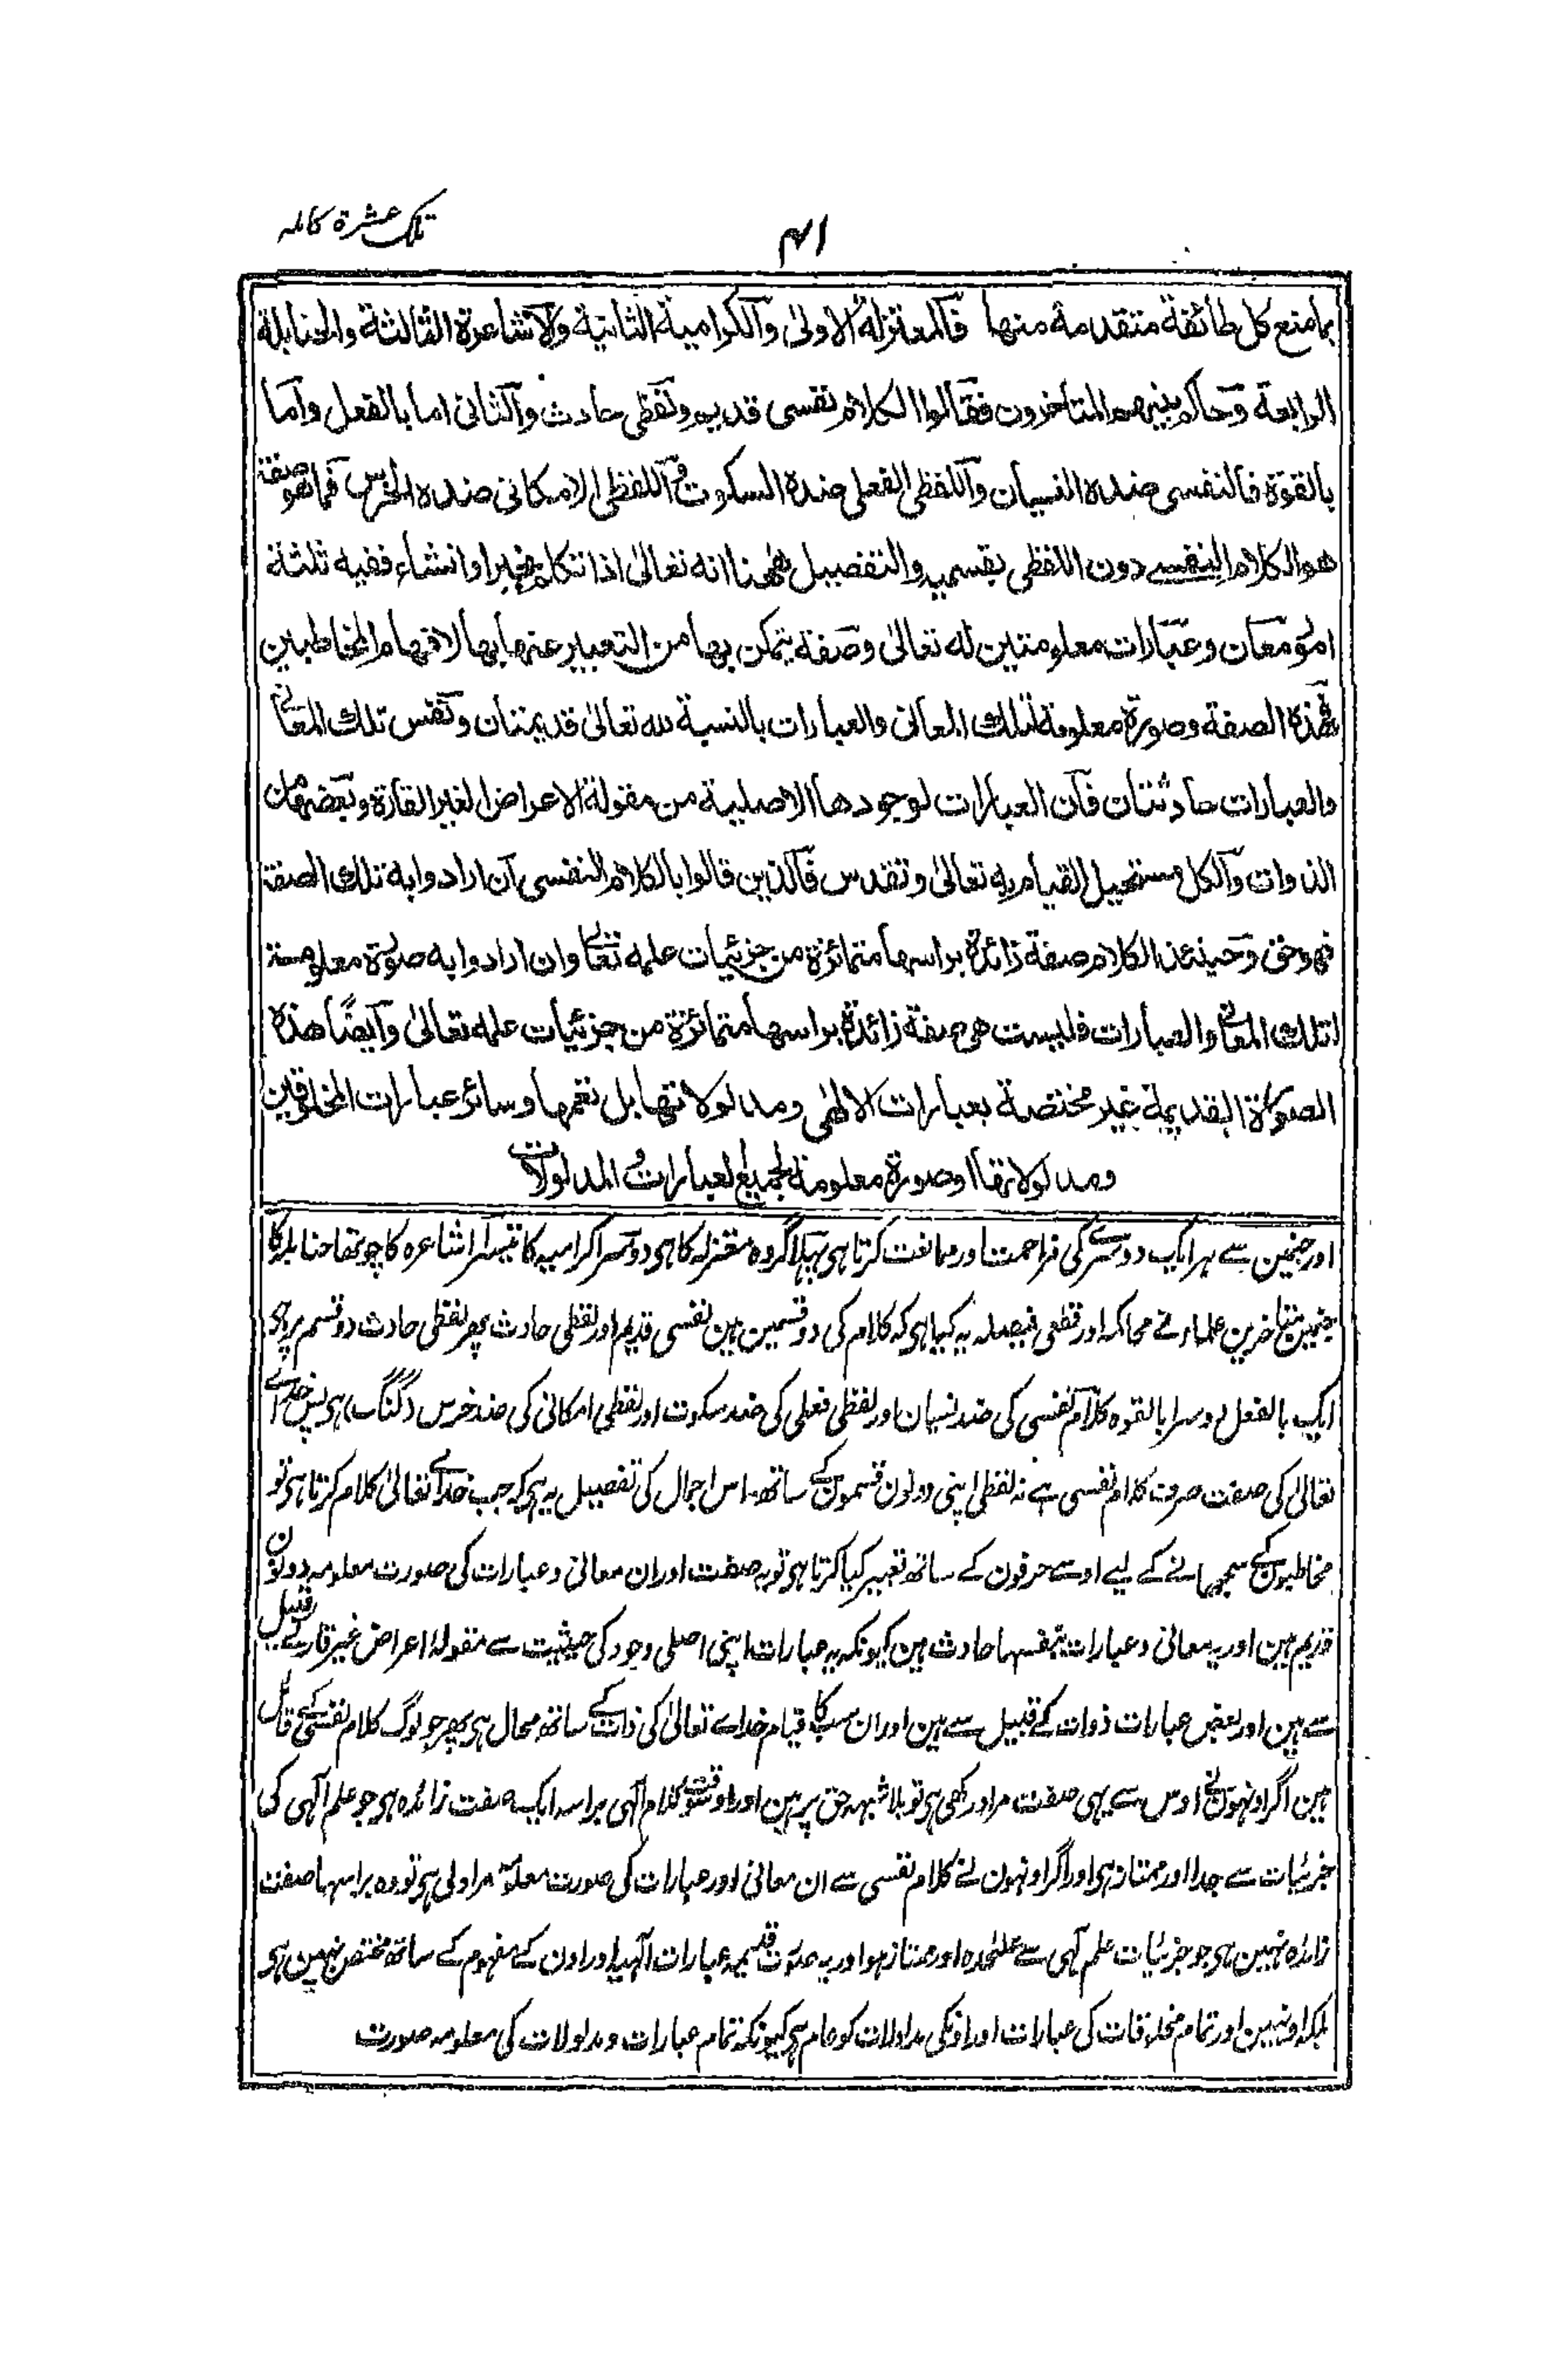 تلک عشرة کاملہ
۴۱
بما منع کل طائفة متقدمة منها فالمعتزلة الاولیٰ والکرامیة الثانیة والاشاعرة الثالثة والحنابلة
الرابعة وحاکم بینهم المتأخرون فقالوا الکلام نفسی قدیم ولفظی حادث والثانی اما بالفعل واما
بالقوة فالنفسی ضده النسیان واللفظی الفعلی ضده السکوت واللفظی الامکانی ضده الخرس فما هو صفة
هو الکلام النفسے دون اللفظی بقسمیه والتفصیل ههنا انه تعالیٰ اذا تکلم خبرا او انشاء ففیه ثلثة
امور معان وعبارات معلومتین له تعالیٰ وصفة یتمکن بها من التعبیر عنها بها لافهام المخاطبین
فهذه الصفة وصورة معلومة لتلك المعانی والعبارات بالنسبة لله تعالیٰ قدیمتان ونفس تلك المعانی
والعبارات حادثتان فان العبارات لوجودها الاصلیة من مقولة الاعراض الغیر القارة وبعضها من
الذوات والکل مستحیل القیام به تعالیٰ وتقدس فالذین قالوا بالکلام النفسی ان ارادوا به تلك الصفة
فهو حق وحینئذ الکلام صفة زائدة براسها متمائزة من جزئیات علمه تعالی وان ارادوا به صورة معلومة
لتلك المعانی والعبارات فلیست هی صفة زائدة براسها متمائزة من جزئیات علمه تعالیٰ وایضًا هذه
الصورة القدیمة غیر مختصة بعبارات الالهی ومدلولاتها بل تعمها وسائر عبارات المخلوقین
ومدلولاتها اوصورة معلومة لجمیع العبارات والمدلولات
اور جنمین سے ہر ایک دوسرے کی مزاحمت اور ممانعت کرتا ہی پہلا گروہ معتزلہ کا ہی دوسرا کرامیہ کا تیسرا اشاعرہ کا چوتھا حنابلہ کا
جنمین متاخرین علماء نے محاکمہ اور قطعی فیصلہ یہ کیا ہی کہ کلام کی دو قسمین ہین نفسی قدیم اور لفظی حادث پھر لفظی حادث دو قسم پر ہی
ایک بالفعل دوسرا بالقوہ کلام نفسی کی ضد نسیان اور لفظی فعلی کی ضد سکوت اور لفظی امکانی کی ضد خرس (گنگ) ہی پس خداے
تعالیٰ کی صفت صرف کلام نفسی ہے نہ لفظی اپنی دونون قسمون کے ساتھ۔ اس اجمال کی تفصیل یہ ہی کہ جب خداے تعالیٰ کلام کرتا ہی تو
مخاطبون کے سمجھانے کے لیے اوسے حرفون کے ساتھ تعبیر کیا کرتا ہی تو یہ صفت اور ان معانی و عبارات کی صورت معلومہ دونون
قدیم ہین اور یہ معانی و عبارات بنفسہا حادث ہین کیونکہ یہ عبارات اپنی اصلی وجود کی حیثیت سے مقولۂ اعراض غیر قار کے قبیل
سے ہین اور بعض عبارات ذوات کے قبیل سے ہین اور ان سب کا قیام خداے تعالیٰ کی ذات کے ساتھ محال ہی پھر جو لوگ کلام نفسی کے قائل
ہین اگر اونہون نے اوس سے یہی صفت مراد رکھی ہی تو بلا شبہہ حق پر ہین اور اوسوقت کلام الٰہی براسہ ایک صفت زائدہ ہی جو علم الٰہی کی
جزئیات سے جدا اور ممتاز ہی اور اگر اونہون نے کلام نفسی سے ان معانی اور عبارات کی صورت معلومہ مراد لی ہی تو وہ براسہا صفت
زائدہ نہین ہی جو جزئیات علم الٰہی سے علٰحدہ اور ممتاز ہو اور یہ صورت قدیمہ عبارات الٰہیہ اور اون کے مفہوم کے ساتھ مختص نہین ہی
بلکہ اونہین اور تمام مخلوقات کی عبارات اور اونکی مدلولات کو عام ہی کیونکہ تمام عبارات و مدلولات کی معلومہ صورت